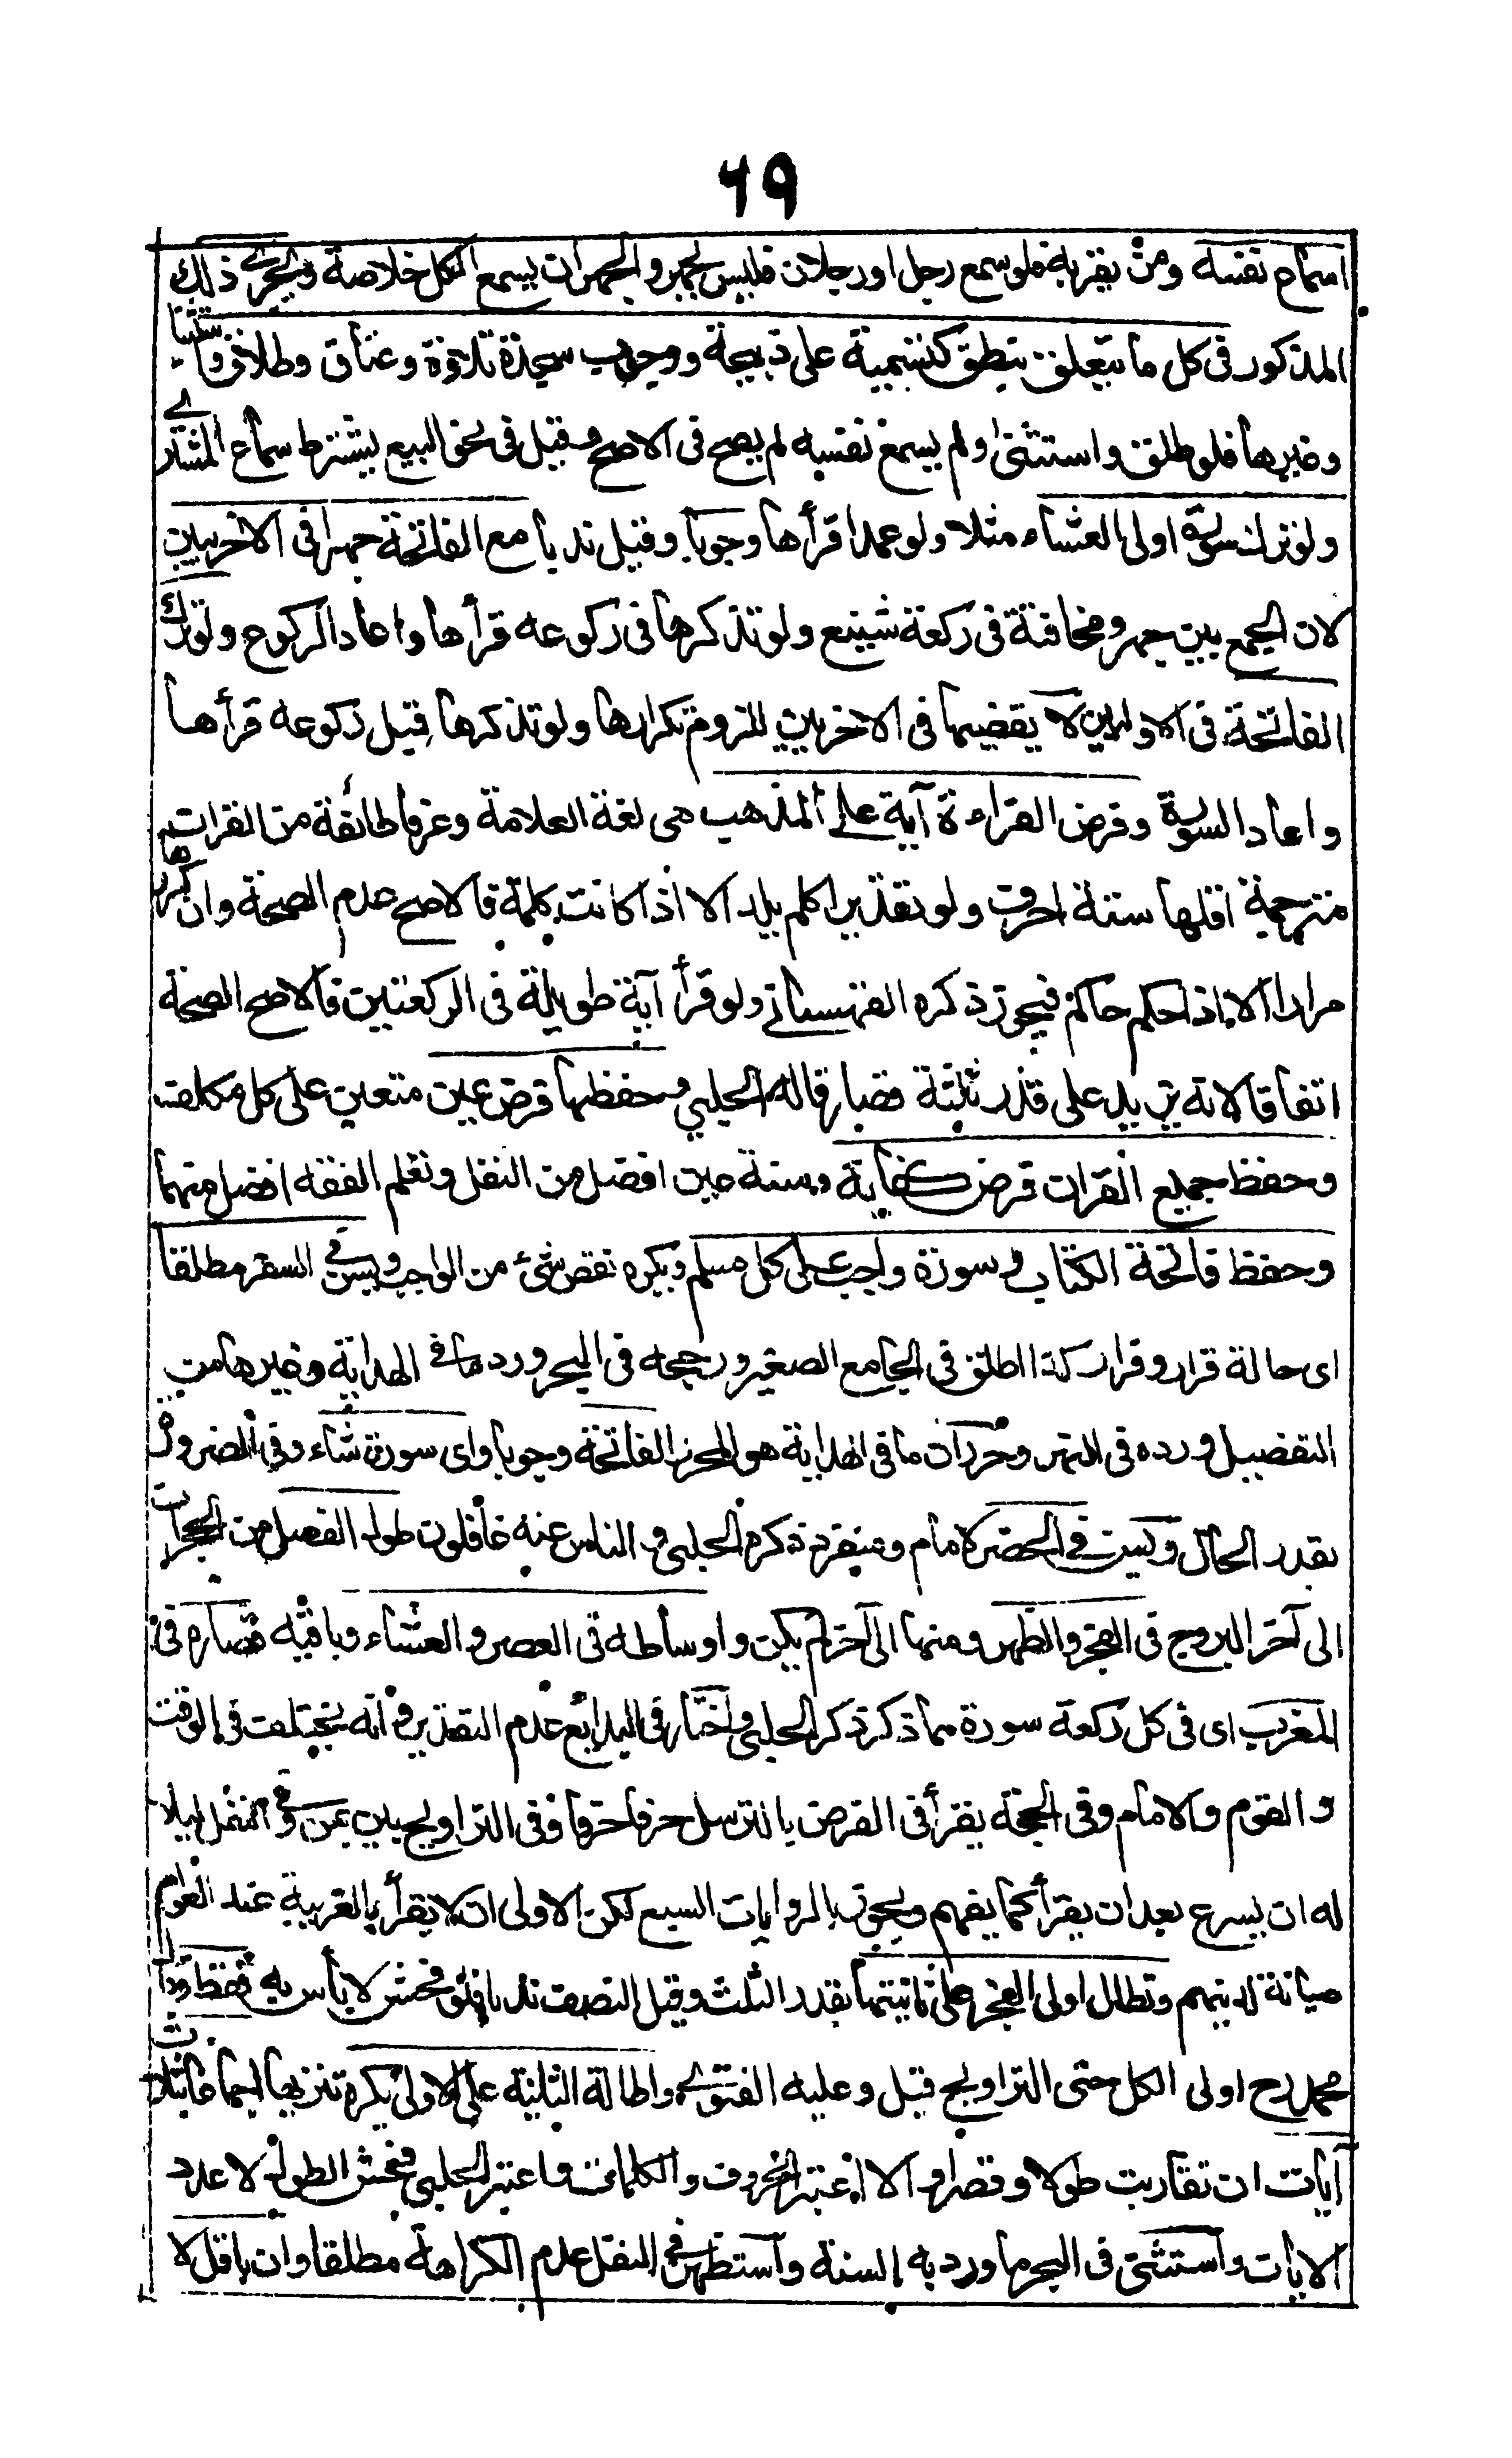 ٦٩
اسماع نفسه ومن بقربه فلو سمع رجل او رجلان فليس بجهر والجهر ان يسمع الكل خلاصة ويجرى ذلك
المذكور فى كل ما يتعلق بنطق كتسمية على ذبيحة ووجوب سجدة تلاوة وعتاق وطلاق واستثناء
وغيرها فلو طلق واستثنى ولم يسمع نفسه لم يصح فى الاصح وقيل فى نحو البيع يشترط سماع المشترى
ولو ترك سورة اولى العشاء مثلا ولو عمدا قرأها وجوبا وقيل ندبا مع الفاتحة جهرا فى الاخريين
لان الجمع بين جهر ومخافتة فى ركعة شنيع ولو تذكرها فى ركوعه قرأها واعاد الركوع ولو ترك
الفاتحة فى الاوليين لا يقضيها فى الاخريين للزوم تكرارها ولو تذكرها قبل ركوعه قرأها
واعاد السورة وفرض القراءة آية على المذهب هى لغة العلامة وعرفا طائفة من القران
مترجمة اقلها ستة احرف ولو تقديرا كلم يلد الا اذا كانت كلمة فالاصح عدم الصحة وان كررها
مرارا الا اذا حكم حاكم فيجوز ذكره القهستانى ولو قرأ آية طويلة فى الركعتين فالاصح الصحة
اتفاقا لانه يزيد على قدر ثلثة قصار قاله الحلبي وحفظها فرض عين متعين على كل مكلف
وحفظ جميع القران فرض كفاية وسنة عين افضل من النفل وتعلم الفقه افضل منهما
وحفظ فاتحة الكتاب وسورة واجب على كل مسلم ويكره نقص شئ من الواجب ويسن فى السفر مطلقا
اى حالة قرار وفرار كذا اطلق فى الجامع الصغير ورجحه فى البحر ورد ما فى الهداية وغيرها من
التفصيل ورده فى النهر وحرر ان ما فى الهداية هو المحرر الفاتحة وجوبا واى سورة شاء وفى الضرورة
بقدر الحال ويسن فى الحضر لامام ومنفرد ذكره الحلبي والناس عنه غافلون طوال المفصل من الحجرات
الى آخر البروج فى الفجر والظهر ومنها الى آخر لم يكن واوساطه فى العصر والعشاء وباقيه قصاره فى
المغرب اى فى كل ركعة سورة مما ذكر ذكره الحلبي واختار فى البدائع عدم التقدير وانه يختلف فى الوقت
والقوم والامام وفى الحجة يقرأ فى الفرض بالترسل حرفا حرفا وفى التراويح بين بين وفى النفل ليلا
له ان يسرع بعد ان يقرأ كما يفهم ويجوز بالروايات السبع لكن الاولى ان لا يقرأ بالغريبة عند العوام
صيانة لدينهم وتطال اولى الفجر على ثانيتها بقدر الثلث وقيل النصف ندبا فلو فحش لا بأس به فقط وقال
محمد رح اولى الكل حتى التراويح قيل وعليه الفتوى واطالة الثانية على الاولى يكره تنزيها اجماعا بثلاث
آيات ان تقاربت طولا وقصرا والا اعتبر الحروف والكلمات واعتبر الحلبي فحش الطول لا عدد
الايات واستثنى فى البحر ما ورد به السنة واستظهر فى النفل عدم الكراهة مطلقا وان باقل لا